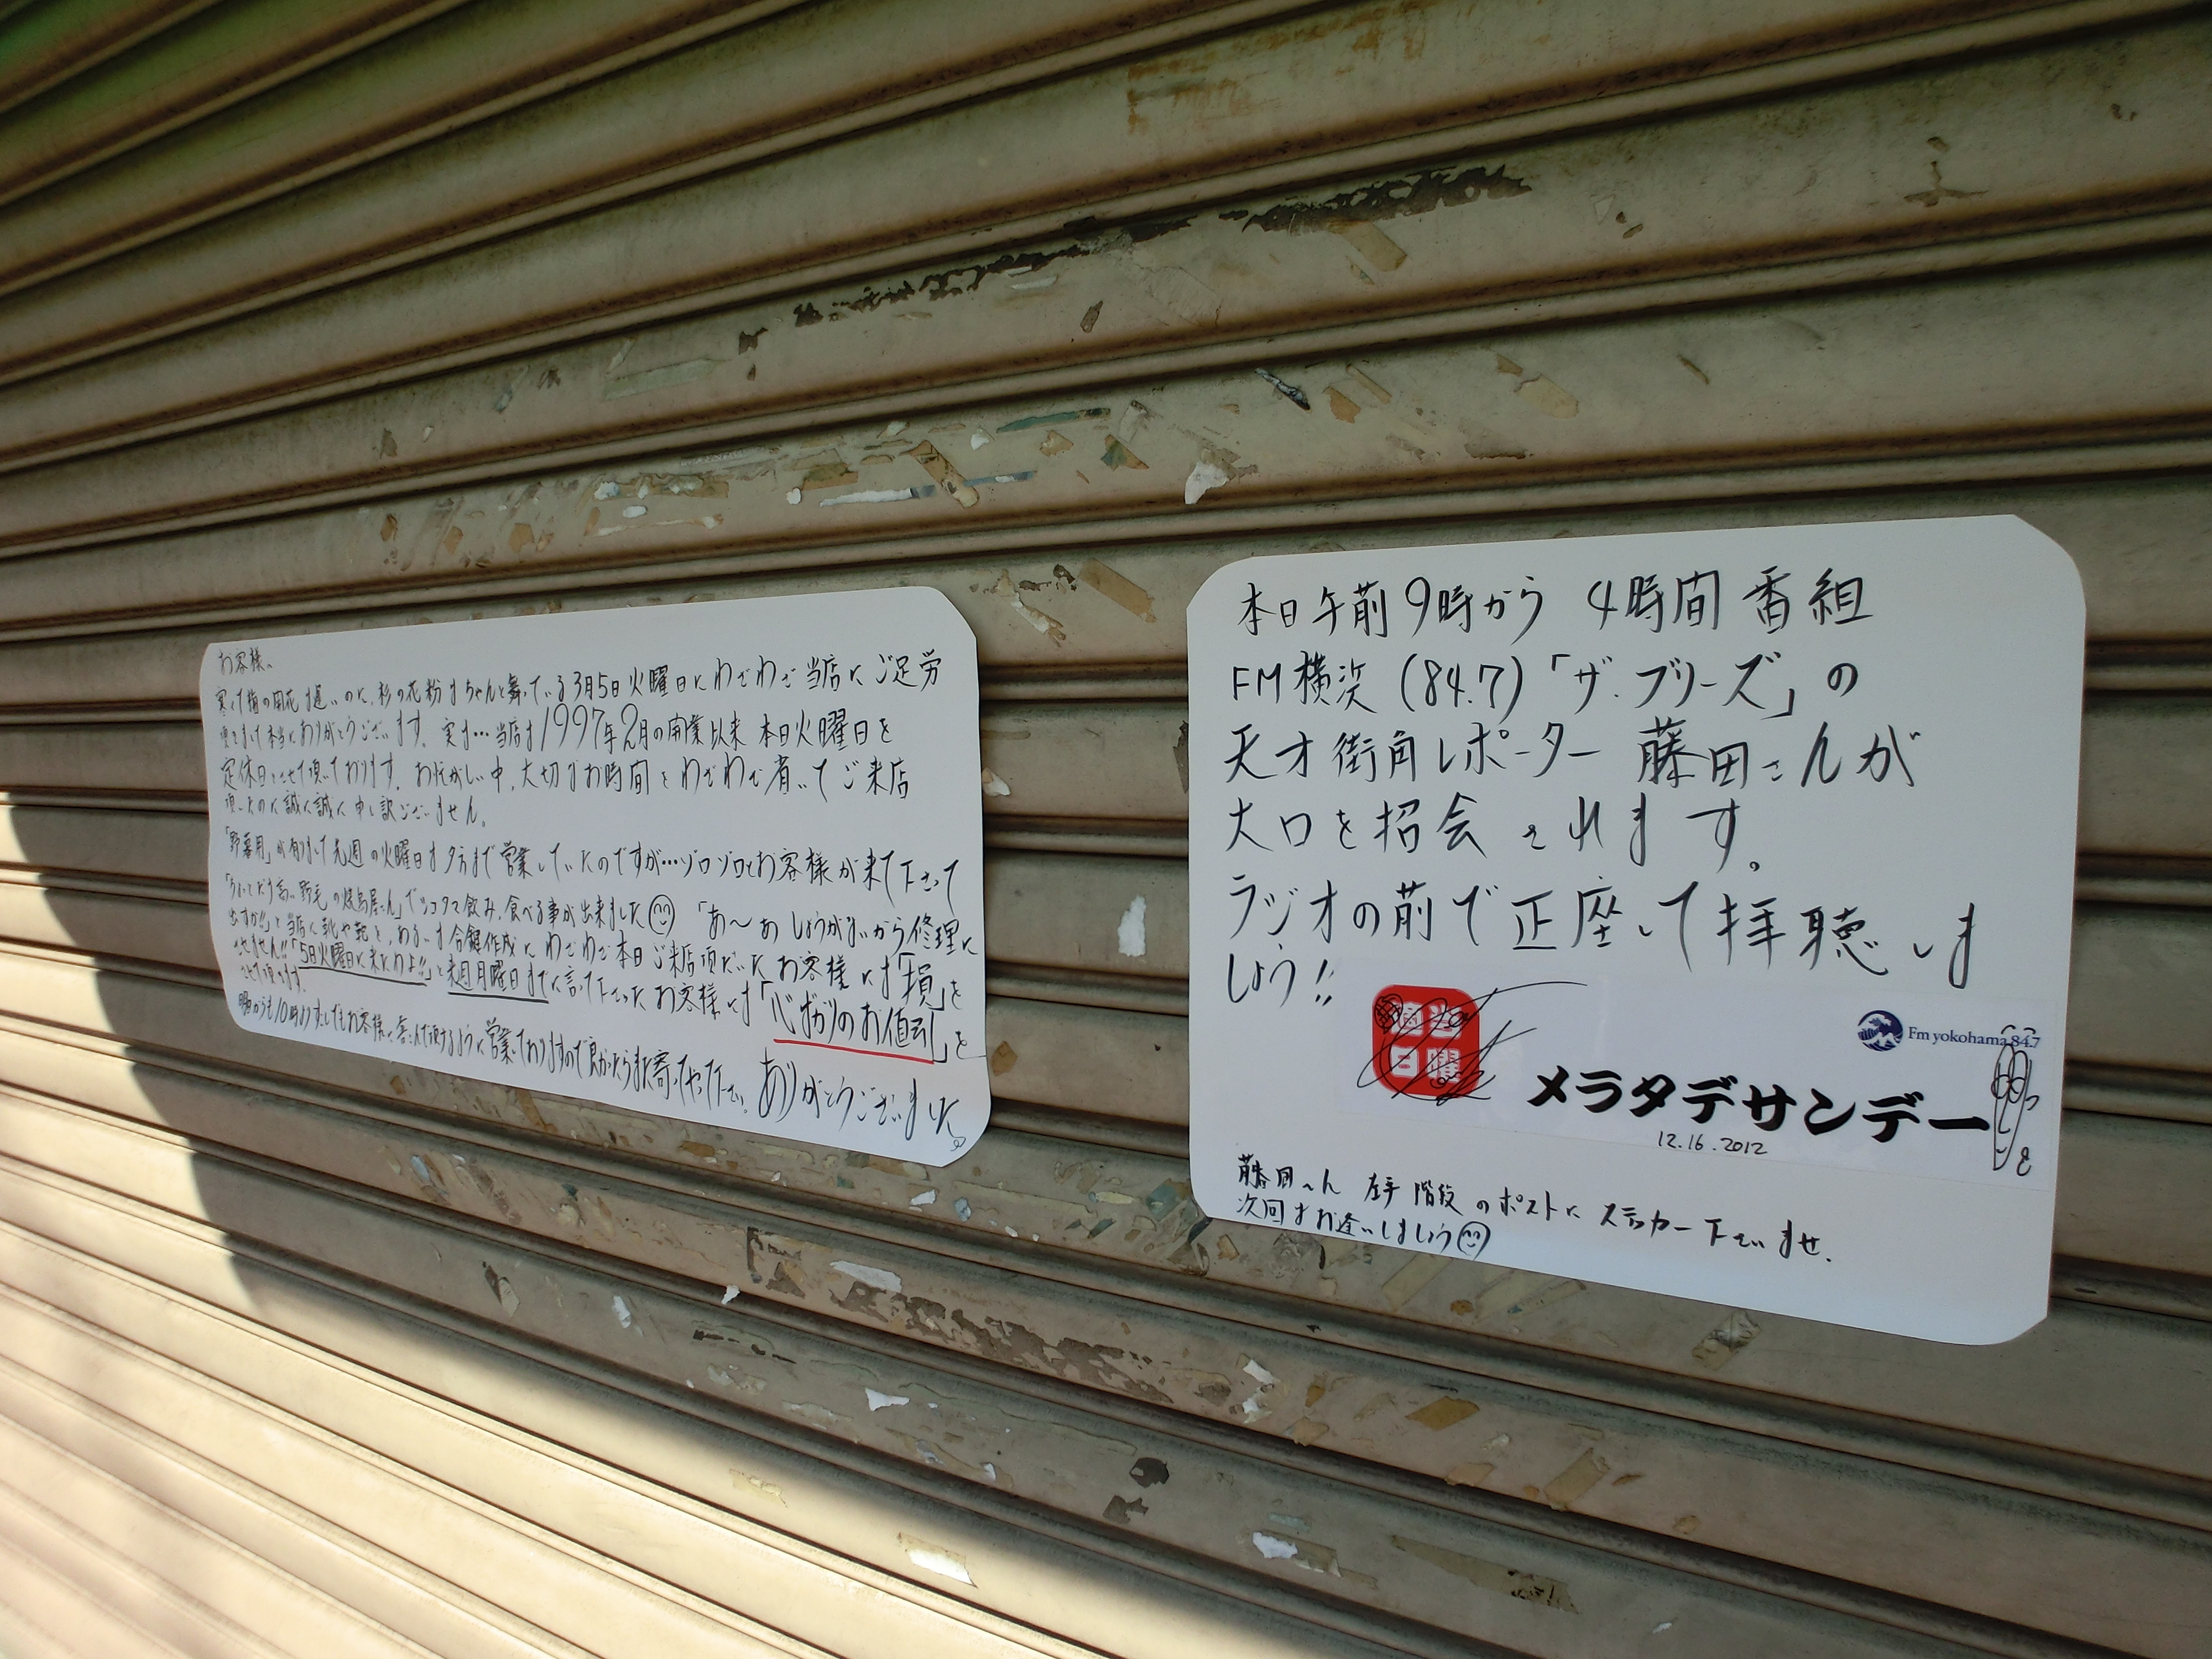 お客様、
寒くて梅の開花は遅いのに、杉の花粉はちゃんと舞っている3月5日火曜日にわざわざ当店にご足労
頂きまして本当にありがとうございます。実は…当店は1997年2月の開業以来 本日火曜日を
定休日とさせて頂いております。お忙がしい中、大切なお時間をわざわざ省いてご来店
頂いたのに誠に誠に申し訳ございません。
「野暮用」が有りまして先週の火曜日は夕方まで営業していたのですが…ゾロゾロとお客様が来て下さって
野毛の焼鳥屋さん」で 飲み、食べる事が出来ました 「あ〜ぁ しょうがないから修理に
出すか!!」と当店に靴や鞄を、あるいは合鍵作成にわざわざ本日ご来店頂だいたお客様には「損」を
させません!!「5日火曜日に来たわよ!!」と来週月曜日までに言って下さったお客様には「心ばかりのお値引」を
させて頂きます。
10時より お客様に喜んで頂けるように営業しておりますので良かったらまた寄ってやって下さい。ありがとうございました。
本日午前9時から 4時間番組
FM横浜(84.7)「ザ・ブリーズ」の
天才街角レポーター 藤田さんが
大口を招会されます。
ラジオの前で正座して拝聴しま
しょう!!
日曜
Fm yokohama 84.7
メラタデサンデー
12.16.2012
藤田さん 左手階段のポストにステッカー下さいませ.
次回はお逢いしましょう